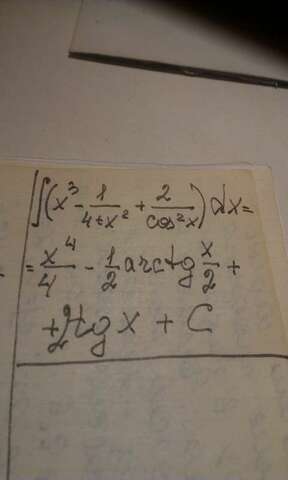 ∫(x³ - 1/(4+x²) + 2/(cos²x)) dx =
= x⁴/4 - 1/2 arctg x/2 +
+ 2tg x + C